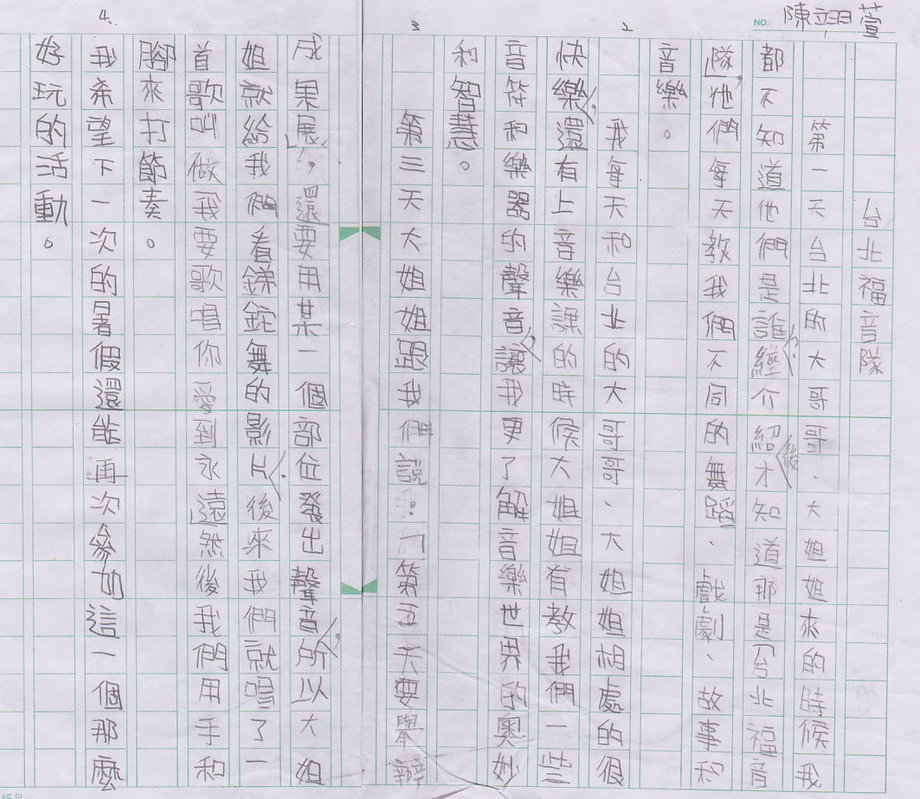 NO. 陳翊萱
台北福音隊
第一天台北的大哥哥、大姐姐來的時候我
都不知道他們是誰，經介紹後才知道那是台北福音
隊，他們每天教我們不同的舞蹈、戲劇、故事和
音樂。
2
我每天和台北的大哥哥、大姐姐相處的很
快樂，還有上音樂課的時候大姐姐有教我們一些
音符和樂器的聲音，讓我更了解音樂世界的奧妙
和智慧。
3
第三天大姐姐跟我們說：「第五天要舉辦
成果展」，還要用某一個部位發出聲音，所以大姐
姐就給我們看踢鉈舞的影片，後來我們就唱了一
首歌叫做我要歌唱你愛到永遠然後我們用手和
腳來打節奏。
4.
我希望下一次的暑假還能再次參加這一個那麼
好玩的活動。